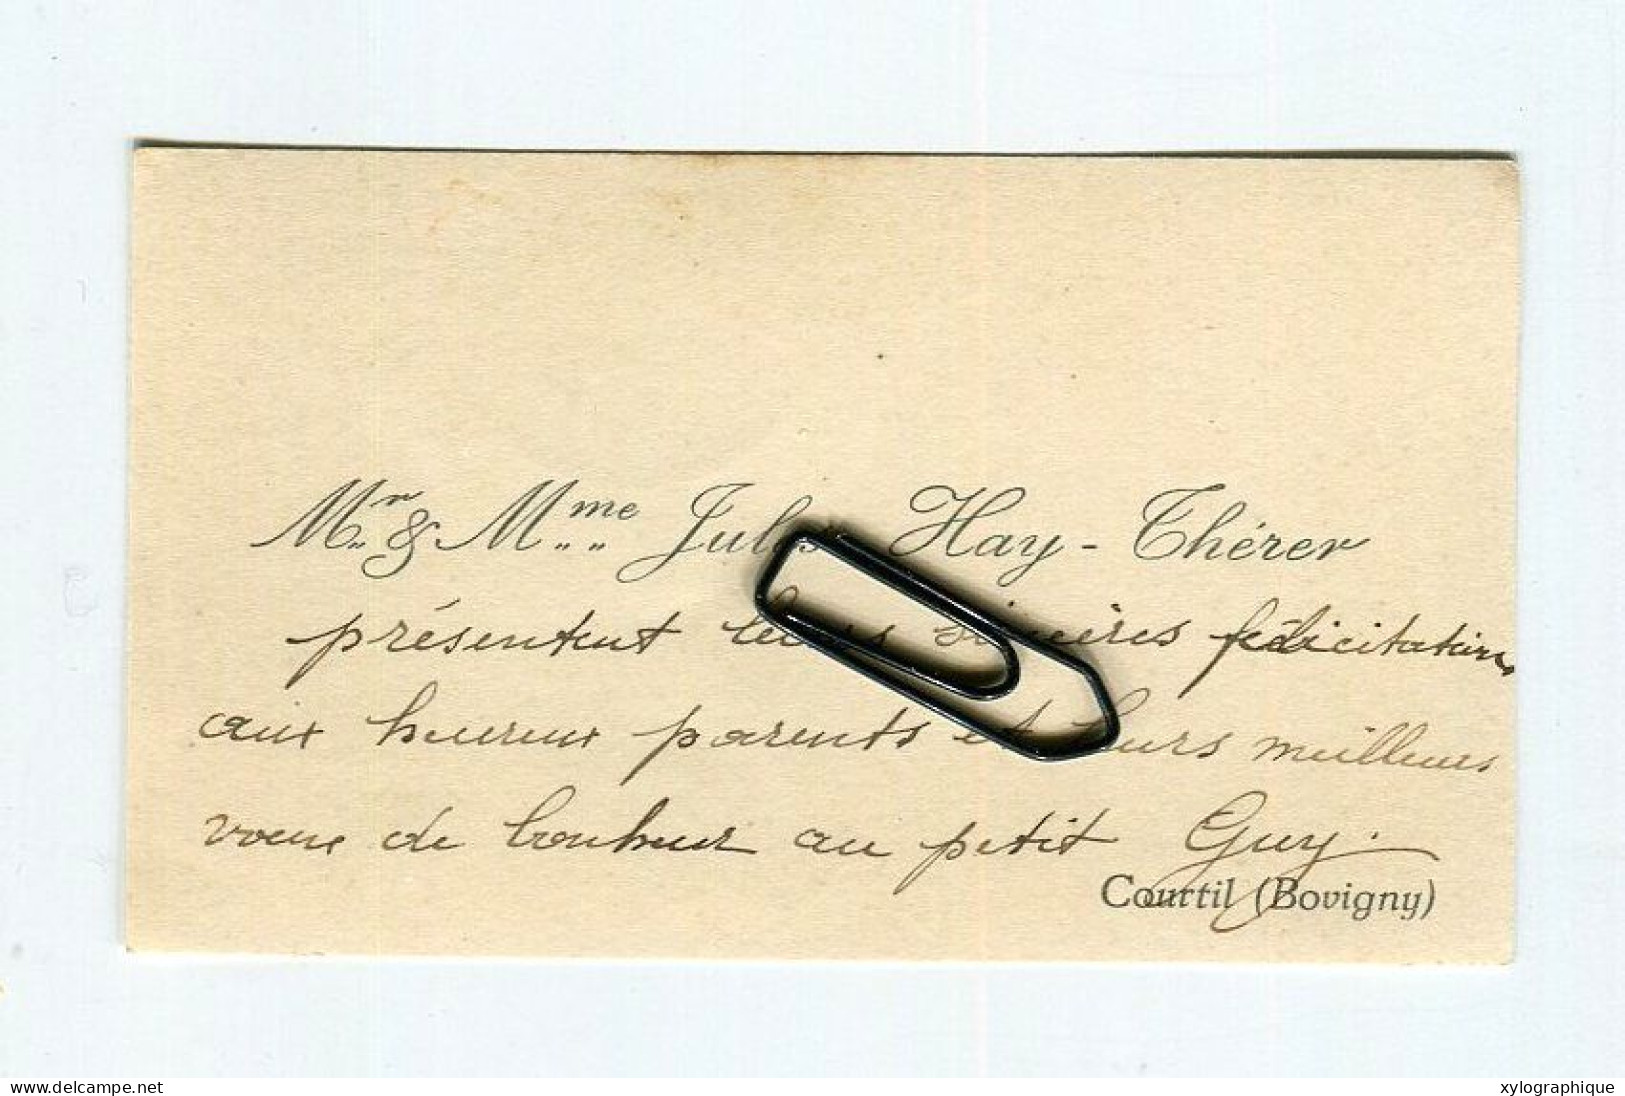 Mr. & Mme. Jules Hay - Thérer
présentent leurs sincères félicitations
aux heureux parents et leurs meilleurs
voeux de bonheur au petit Guy.
Courtil (Bovigny)
www.delcampe.net
xylographique